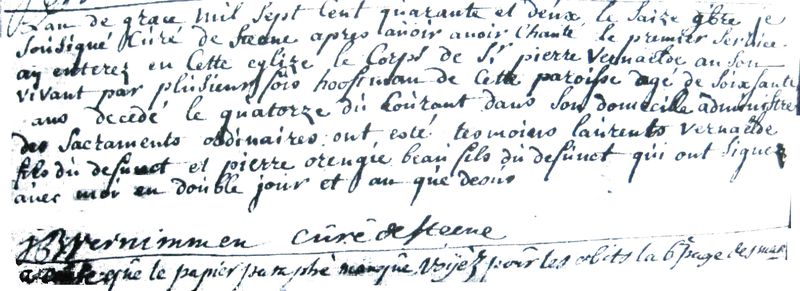 L'an de grace mil sept cent quarante et deux le saize 9bre je
sousigné Curé de steene apres avoir avoir chanté le premier service
ay enterez en cette eglize le Corps de Sr pierre vernaelde en son
vivant par plusieurs fois hooftman de Cette paroisse agé de soixsante
ans decedé le quatorze du Courant dans son domicile administré
des Sacraments ordinaires ont esté tesmoins laurents vernaelde
fils du defunct et pierre orengie beau fils du defunct qui ont signez
avec moi en double jour et an que desus
vernimmen Curé de steene
que le papier paraphé manque voyez pour les obits la 6e page des mar